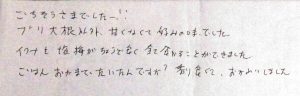 ごちそうさまでした…!!
ブリ大根以外、甘くなくて好みの味でした
イワシも塩梅がちょうど良く全て食べることができました
ごはんおかまでたいたんですか? 香り良くて、おかわりしました